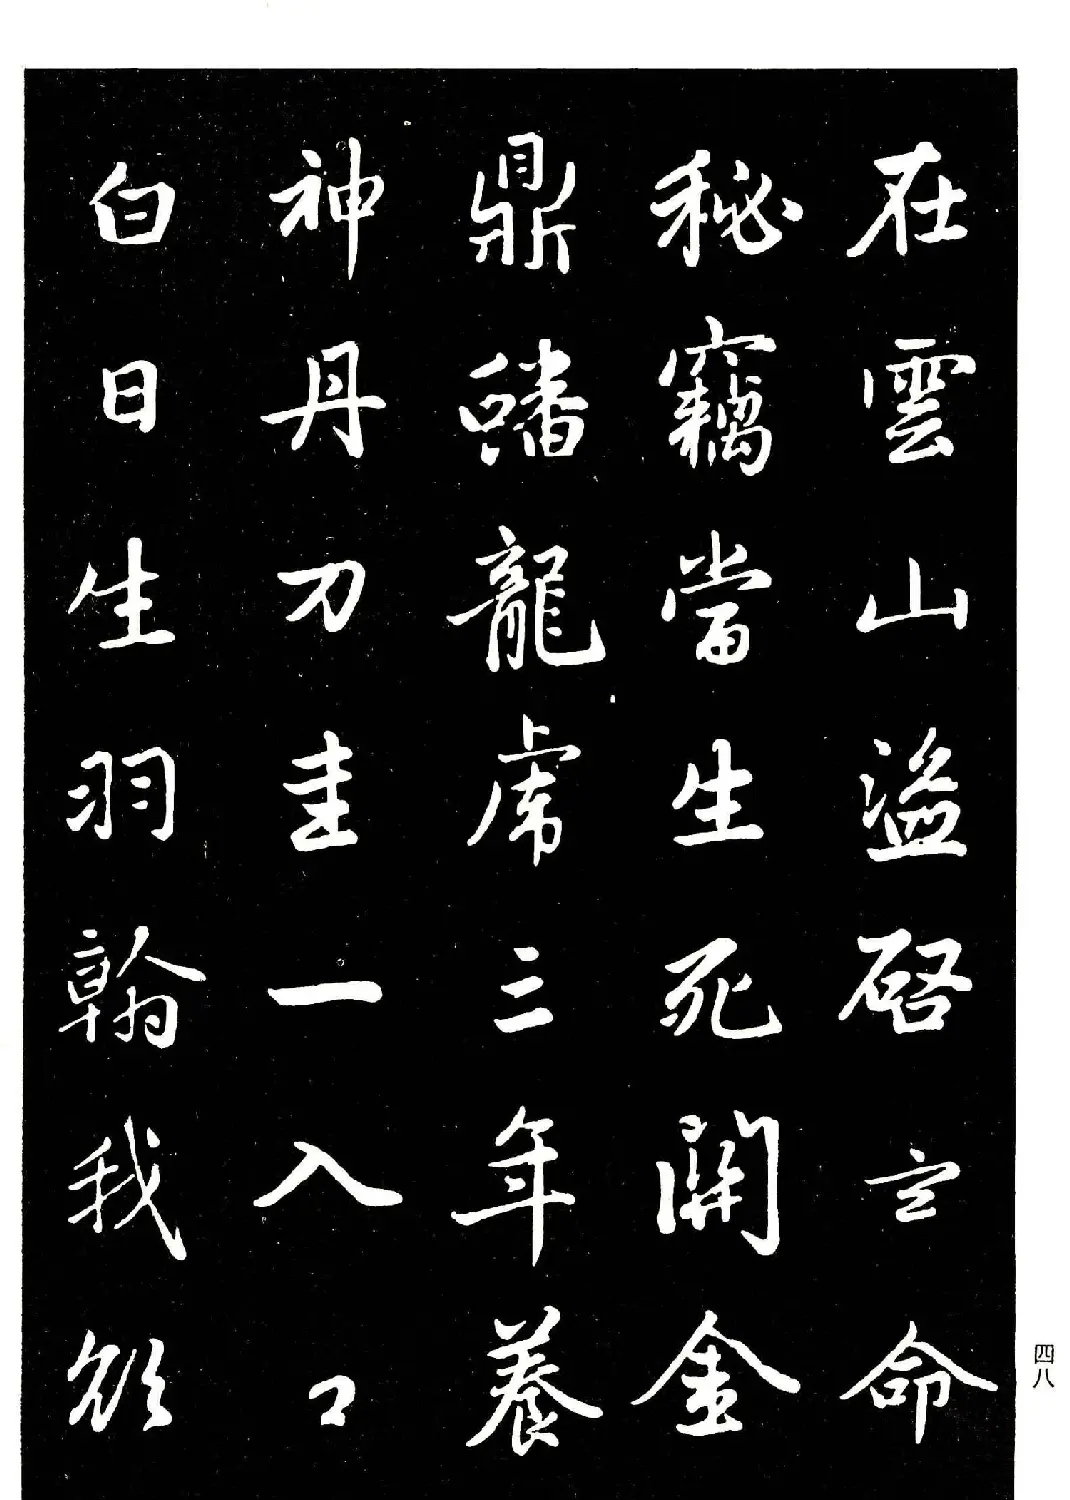 在雲山盜啓玄命
秘竊當生死關金
鼎蟠龍虎三年養
神丹刀圭一入口
白日生羽翰我欲
四八